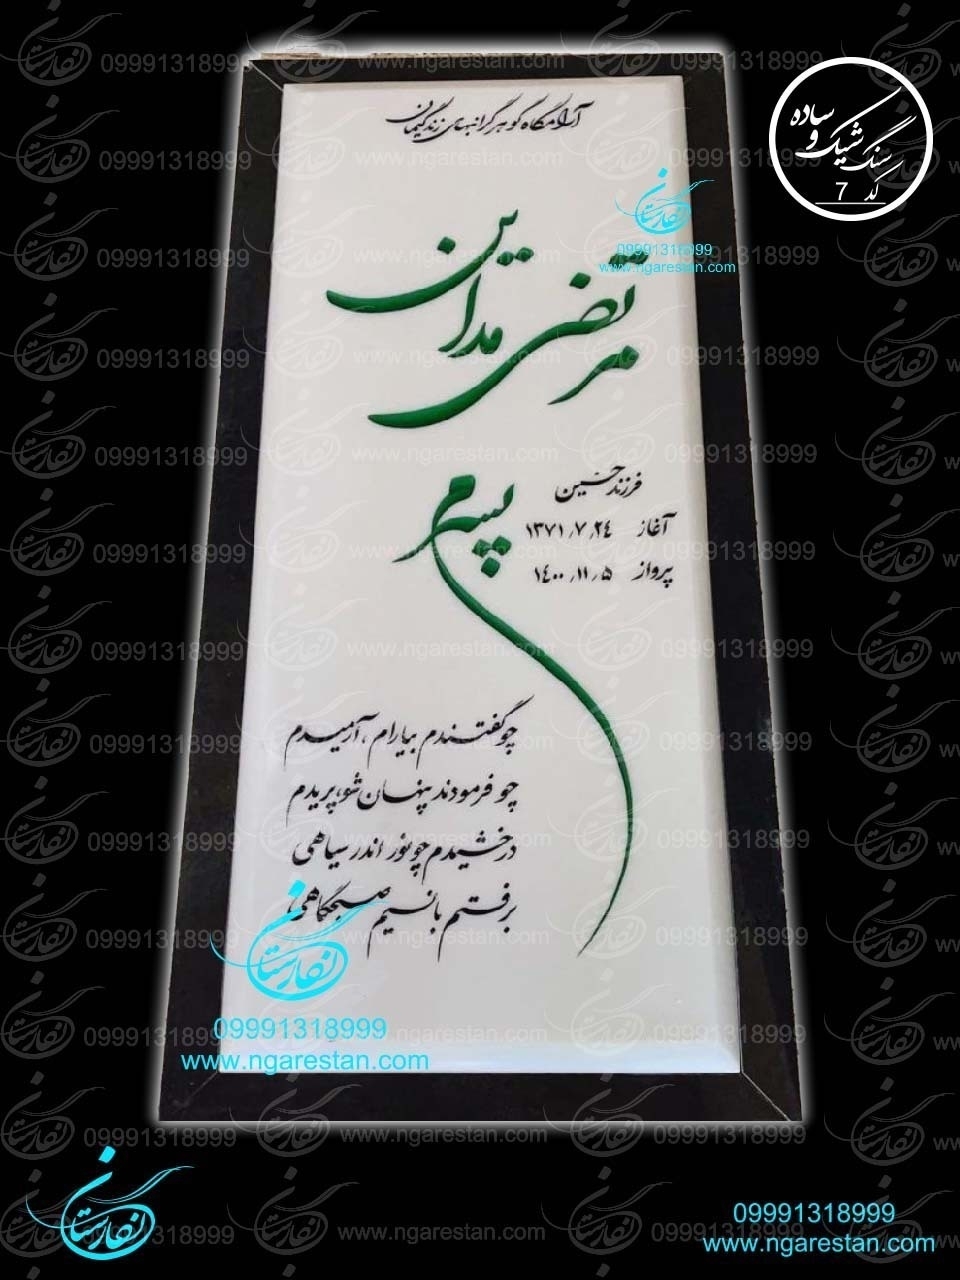 آرامگاه گوهر گرانبهای زندگیمان
مرتضی مدراین
فرزند حسین
آغاز ۱۳۷۱٫۷٫۲٤
پرواز ۱٤۰۰٫۱۱٫۵
پسرم
چو گفتندم بیارام، آرمیدم
چو فرمودند پنهان شو، پریدم
درخشیدم چو نور اندر سیاهی
برفتم با نسیم صبحگاهی
سنگ شیک و ساده
کد 7
نگارستان
09991318999
www.ngarestan.com
نگارستان
09991318999
www.ngarestan.com
نگارستان
09991318999
www.ngarestan.com